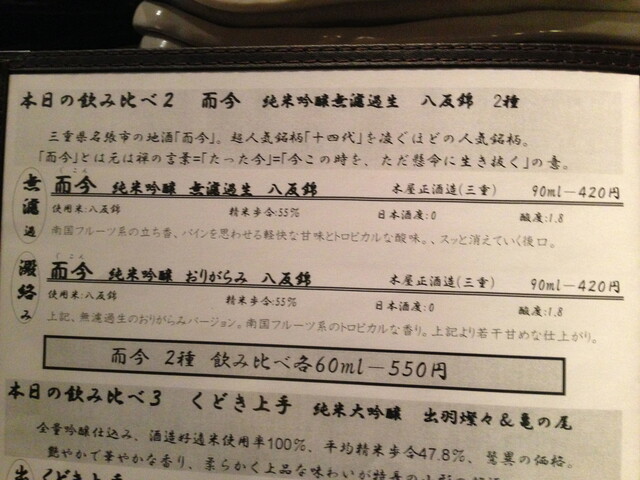 本日の飲み比べ2 而今 純米吟醸無濾過生 八反錦 2種
三重県名張市の地酒「而今」。超人気銘柄「十四代」を凌ぐほどの人気銘柄。
「而今」とは元は禅の言葉=「たった今」=「今この時を、ただ懸命に生き抜く」の意。
無濾過
じこん
而今 純米吟醸 無濾過生 八反錦 木屋正酒造(三重) 90ml―420円
使用米:八反錦 精米歩合:55% 日本酒度:0 酸度:1.8
南国フルーツ系の立ち香、パインを思わせる軽快な甘味とトロピカルな酸味。、スッと消えていく後口。
澱絡み
じこん
而今 純米吟醸 おりがらみ 八反錦 木屋正酒造(三重) 90ml―420円
使用米:八反錦 精米歩合:55% 日本酒度:0 酸度:1.8
上記、無濾過生のおりがらみバージョン。南国フルーツ系のトロピカルな香り。上記より若干甘めな仕上がり。
而今 2種 飲み比べ各60ml―550円
本日の飲み比べ3 くどき上手 純米大吟醸 出羽燦々&亀の尾
全量吟醸仕込み、酒造好適米使用率100%、平均精米歩合47.8%、驚異の価格。
艶やかで華やかな香り、柔らかく上品な味わいが
くどき上手